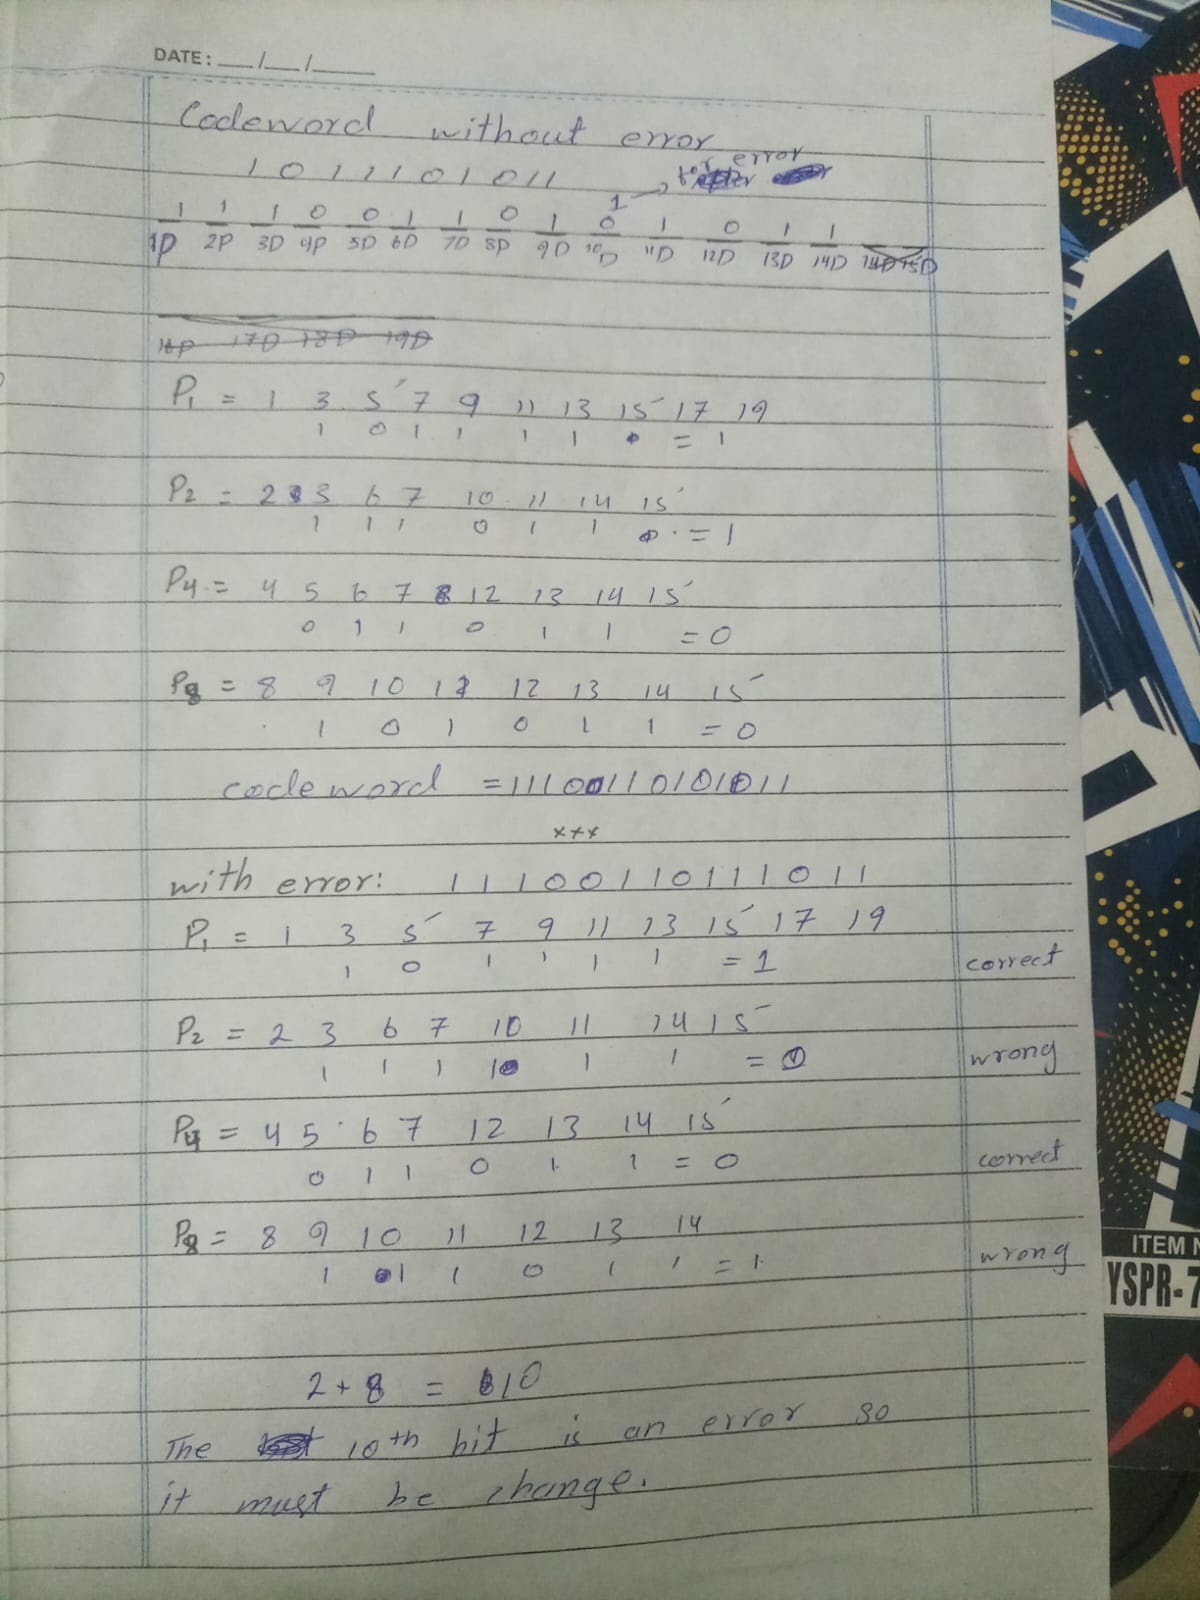 DATE: __/__/____
Codeword without error
1 0 1 1 1 0 1 0 1 1
1 → for error
1 1 1 0 0 1 1 0 1 0 1 0 1 1
1P 2P 3D 4P 5D 6D 7D 8P 9D 10D 11D 12D 13D 14D 14D 15D
16P 17D 18D 19D
P1 = 1 3 5 7 9 11 13 15 17 19
1 0 1 1 1 1 = 1
P2 = 2 3 6 7 10 11 14 15
1 1 1 0 1 1 = 1
P4 = 4 5 6 7 12 13 14 15
0 1 1 0 1 1 = 0
P8 = 8 9 10 11 12 13 14 15
1 0 1 0 1 1 = 0
codeword = 11100110101011
xxx
with error: 1 1 1 0 0 1 1 0 1 1 1 0 1 1
P1 = 1 3 5 7 9 11 13 15 17 19
1 0 1 1 1 1 = 1 correct
P2 = 2 3 6 7 10 11 14 15
1 1 1 1 1 1 = 0 wrong
P4 = 4 5 6 7 12 13 14 15
0 1 1 0 1 1 = 0 correct
P8 = 8 9 10 11 12 13 14
1 1 1 0 1 1 = 1 wrong
2 + 8 = 10
The 10th bit is an error so
it must be change.
ITEM N
YSPR-7